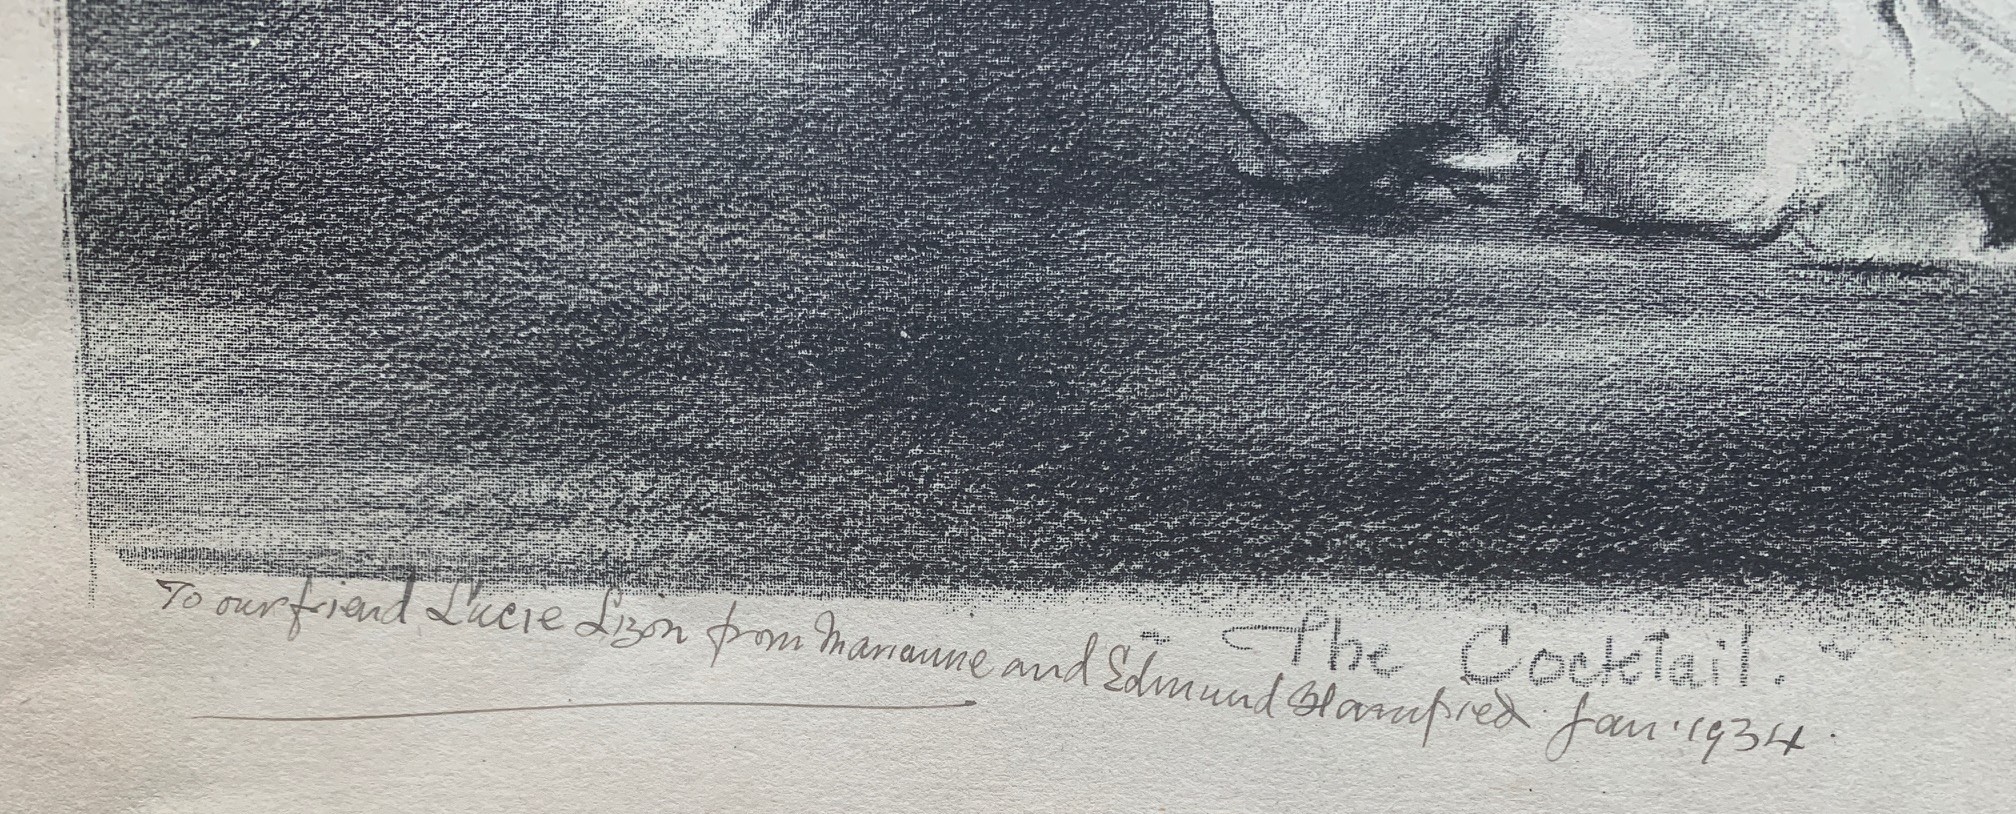 To our friend Lucie Lizon from Marianne and Edmund Blampied. Jan. 1934.
"The Cocktail."